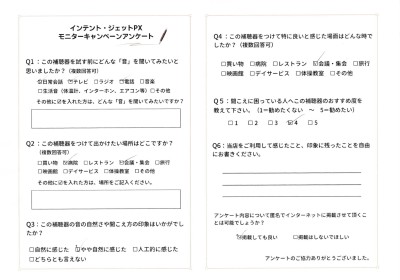 インテント・ジェットPX
モニターキャンペーンアンケート
Q1：この補聴器を試す前にどんな「音」を聞いてみたいと
思いましたか？（複数回答可）
☑日常会話 ☑テレビ □ラジオ ☑電話 □音楽
□生活音（体温計、インターホン、エアコン等）□その他
その他に☑を入れた方は、どんな「音」を聞いてみたいですか？
Q2：この補聴器をつけて出かけたい場所はどこですか？
（複数回答可）
□買い物 ☑病院 □レストラン ☑会議・集会 □旅行
□映画館 □デイサービス □体操教室 □その他
その他に☑を入れた方は、場所をご記入ください。
Q3：この補聴器の音の自然さや聞こえ方の印象はいかがでし
たか？
□自然に感じた ☑やや自然に感じた □人工的に感じた
□どちらとも言えない
Q4：この補聴器をつけて特に良いと感じた場面はどんな時で
したか？（複数回答可）
□買い物 □病院 □レストラン ☑会議・集会 □旅行
□映画館 □デイサービス □体操教室 □その他
Q5：聞こえに困っている人へこの補聴器のおすすめ度を
教えて下さい。（1＝勧めたくない ～ 5＝勧めたい）
□1 □2 □3 ☑4 □5
Q6：当店をご利用して感じたこと、印象に残ったことを自由
にお書きください。
アンケート内容について匿名でインターネットに掲載させて頂くこ
とは可能でしょうか？
☑掲載しても良い □掲載はしないでほしい
アンケートのご協力ありがとうございました。